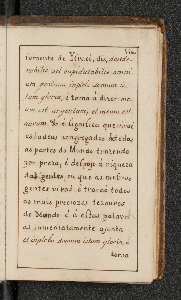 tamente de Ysrael, diz, deside-
rabilis vel cupiditabilis omni-
um gentium implebo domum is-
tam gloria, e torna à dizer meum
est argentum, et meum est
aurum
os Judeus congregados de todas
as partes do Mundo tenrende
por preza, e despojo à riqueza
das gentes, en que as mesmas
gentes virão e trarão todos
os mais preciozos tezouros
do Mundo e à estas palavras
immediatamente ajunta
et implebo domum istam gloria, e
torna